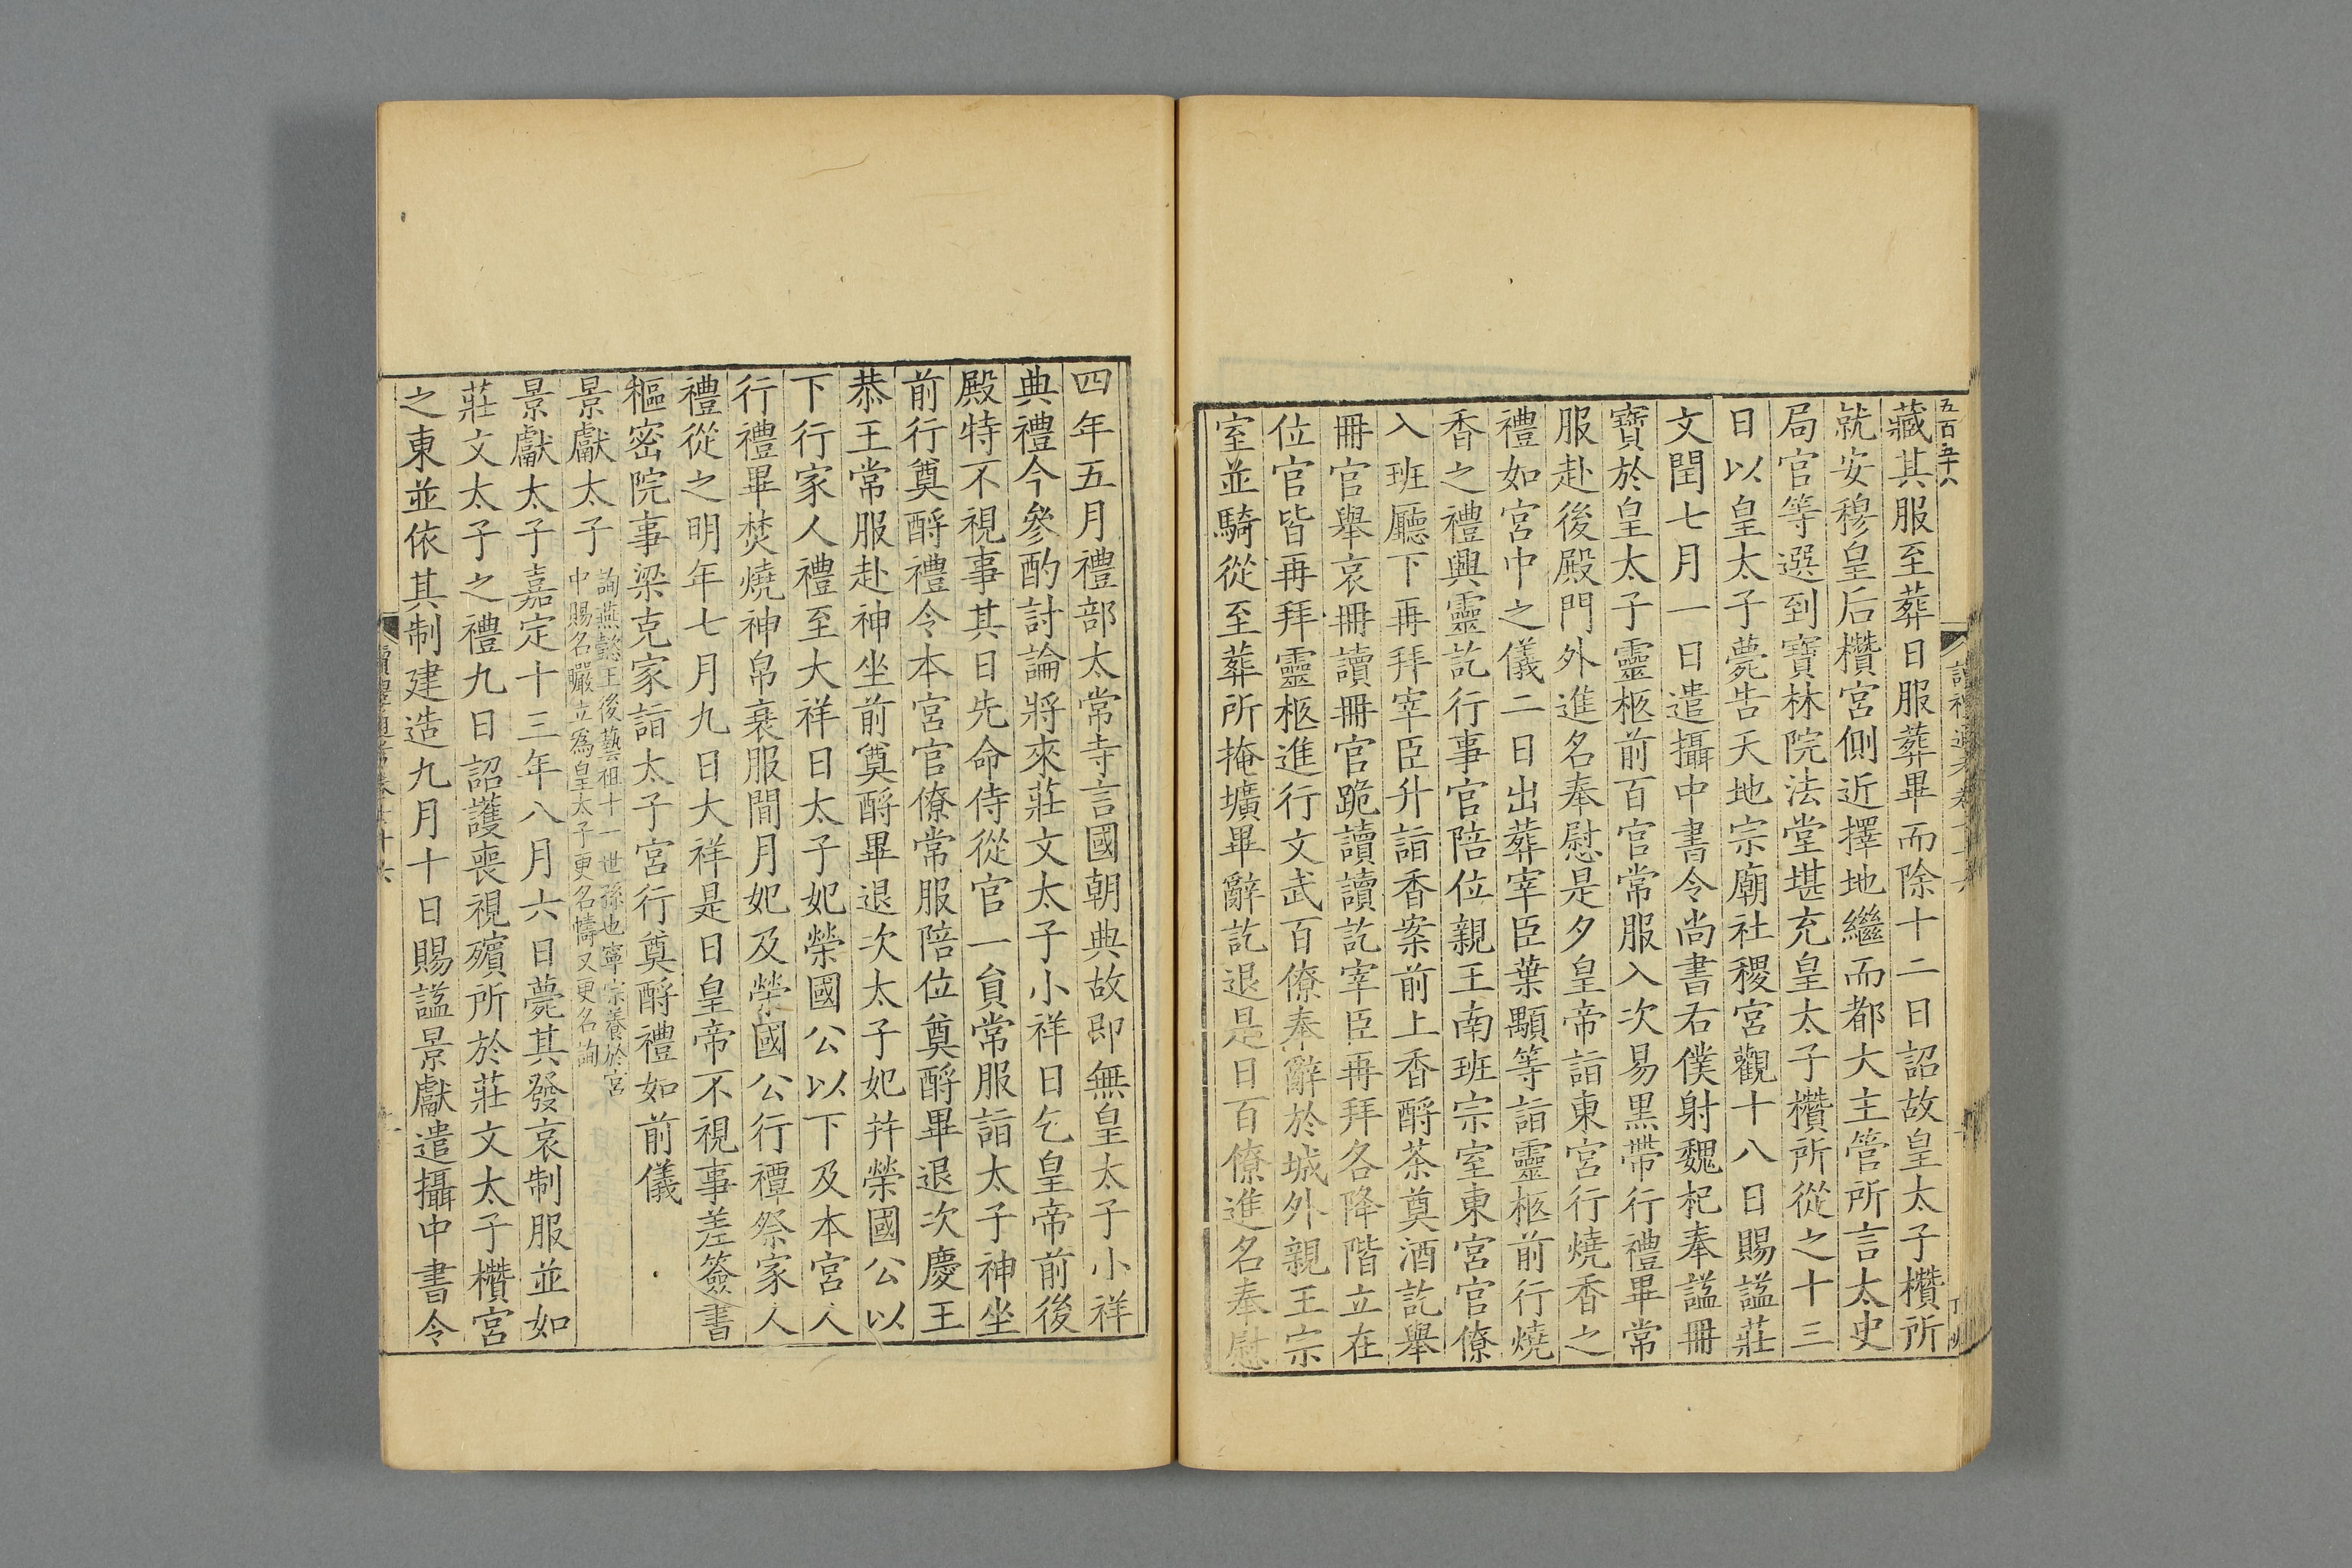 五百五十六
藏其服至葬日服葬畢而除十二日詔故皇太子欑所
就安穆皇后欑宮側近擇地繼而都大主管所言太史
局官等選到寶林院法堂堪充皇太子欑所從之十三
日以皇太子薨告天地宗廟社稷宮觀十八日賜諡莊
文閏七月一日遣攝中書令尚書右僕射魏杞奉諡冊
寶於皇太子靈柩前百官常服入次易黑帶行禮畢常
服赴後殿門外進名奉慰是夕皇帝詣東宮行燒香之
禮如宮中之儀二日出葬宰臣葉顒等詣靈柩前行燒
香之禮興靈訖行事官陪位親王南班宗室東宮官僚
入班廳下再拜宰臣升詣香案前上香酹茶奠酒訖舉
冊官舉哀冊讀冊官跪讀讀訖宰臣再拜各降階立在
位官皆再拜靈柩進行文武百僚奉辭於城外親王宗
室並騎從至葬所掩壙畢辭訖退是日百僚進名奉慰
四年五月禮部太常寺言國朝典故即無皇太子小祥
典禮今參酌討論將來莊文太子小祥日乞皇帝前後
殿特不視事其日先命侍從官一員常服詣太子神坐
前行奠酹禮令本宮官僚常服陪位奠酹畢退次慶王
恭王常服赴神坐前奠酹畢退次太子妃并榮國公以
下行家人禮至大祥日太子妃榮國公以下及本宮人
行禮畢焚燒神帛衰服間月妃及榮國公行禫祭家人
禮從之明年七月九日大祥是日皇帝不視事差簽書
樞密院事梁克家詣太子宮行奠酹禮如前儀
景獻太子詢燕懿王後藝祖十一世孫也寧宗養於宮
中賜名曮立為皇太子更名幬又更名詢
景獻太子嘉定十三年八月六日薨其發哀制服並如
莊文太子之禮九日詔護喪視殯所於莊文太子欑宮
之東並依其制建造九月十日賜諡景獻遣攝中書令